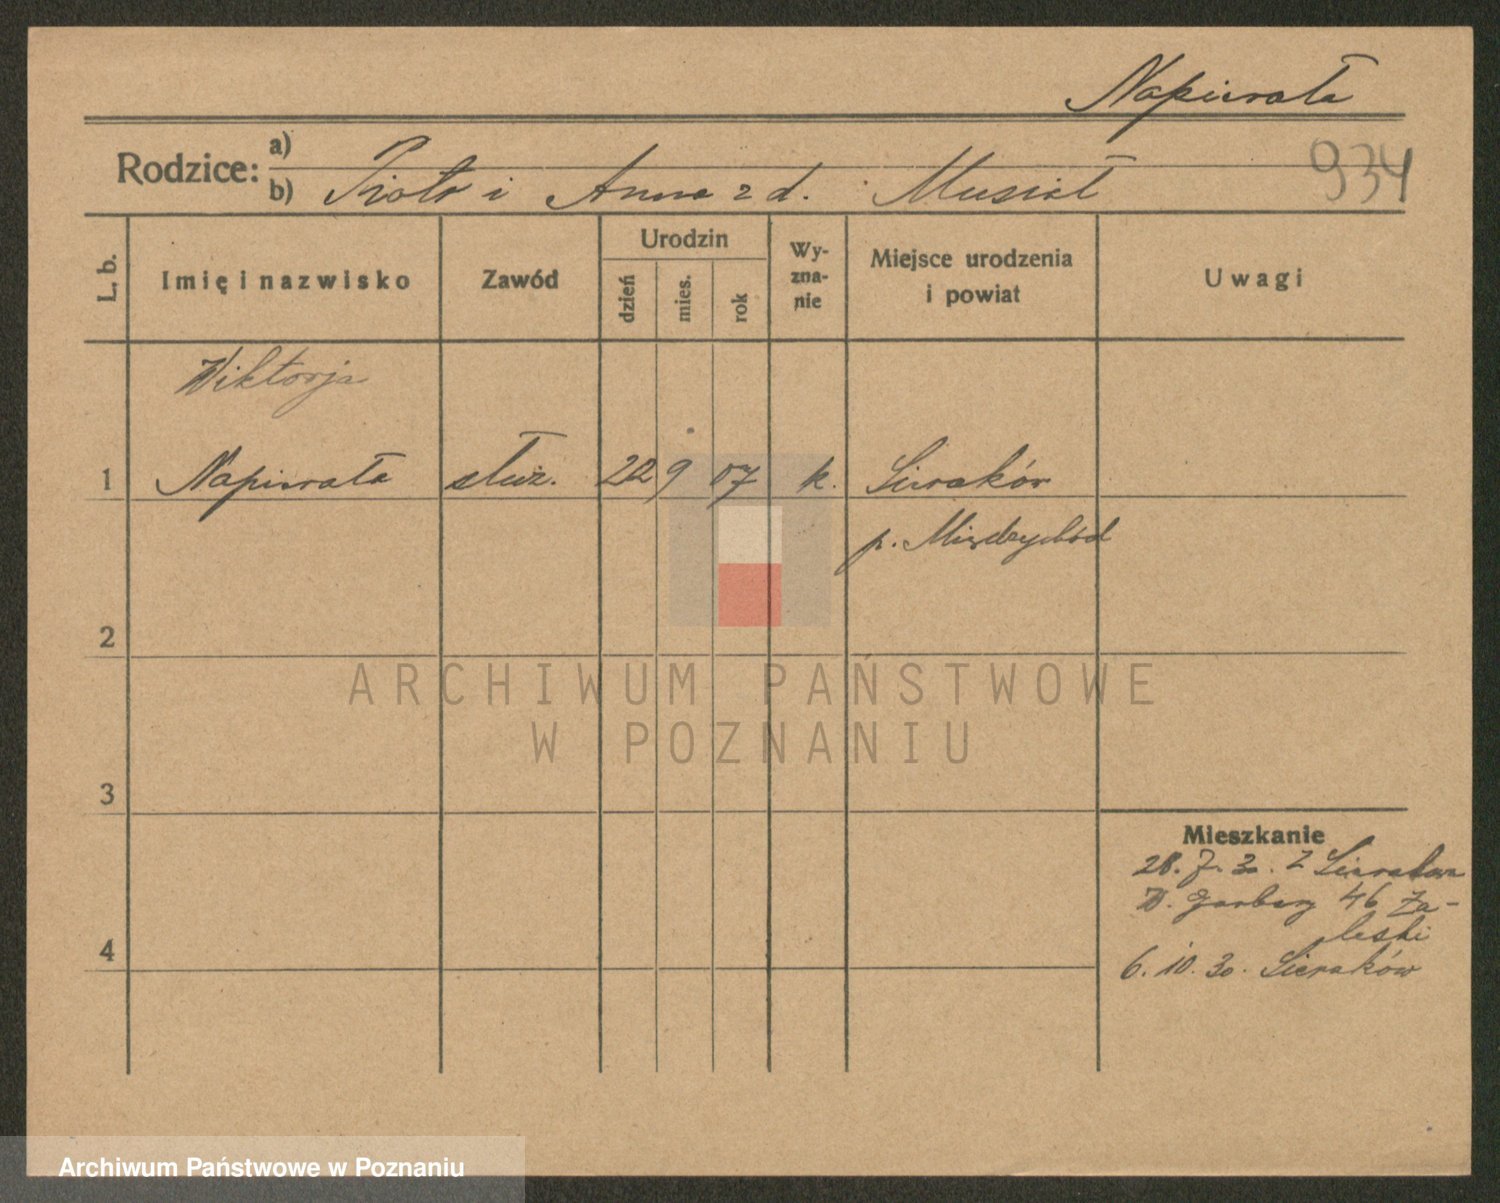 Napierała
934
Rodzice:
a)
b) Piotr i Anna z d. Musiał
L. b.
Imię i nazwisko
Zawód
Urodzin
dzień
mies.
rok
Wy-
zna-
nie
Miejsce urodzenia
i powiat
Uwagi
Wiktorja
1 Napierała służ. 22 9 07 k. Sieraków
p. Międzychód
2
3
4
Mieszkanie
28. 7. 30. z Sierakowa
W. Garbary 46 Za-
leski
6. 10. 30. Sieraków
ARCHIWUM PAŃSTWOWE
W POZNANIU
Archiwum Państwowe w Poznaniu